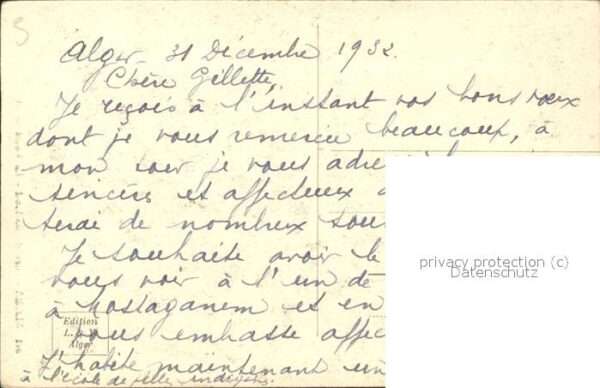 Alger - 31 Décembre 1932.
Chère Gillette,
Je reçois à l'instant vos bons vœux
dont je vous remercie beaucoup, à
mon tour je vous
sincères et affectueux
de nombreux
Je souhaite avoir le
vous voir à l'un de
à Mostaganem et en
vous embrasse
J'habite maintenant
à l'école de fille
Edition
Alger
privacy protection (c)
Datenschutz